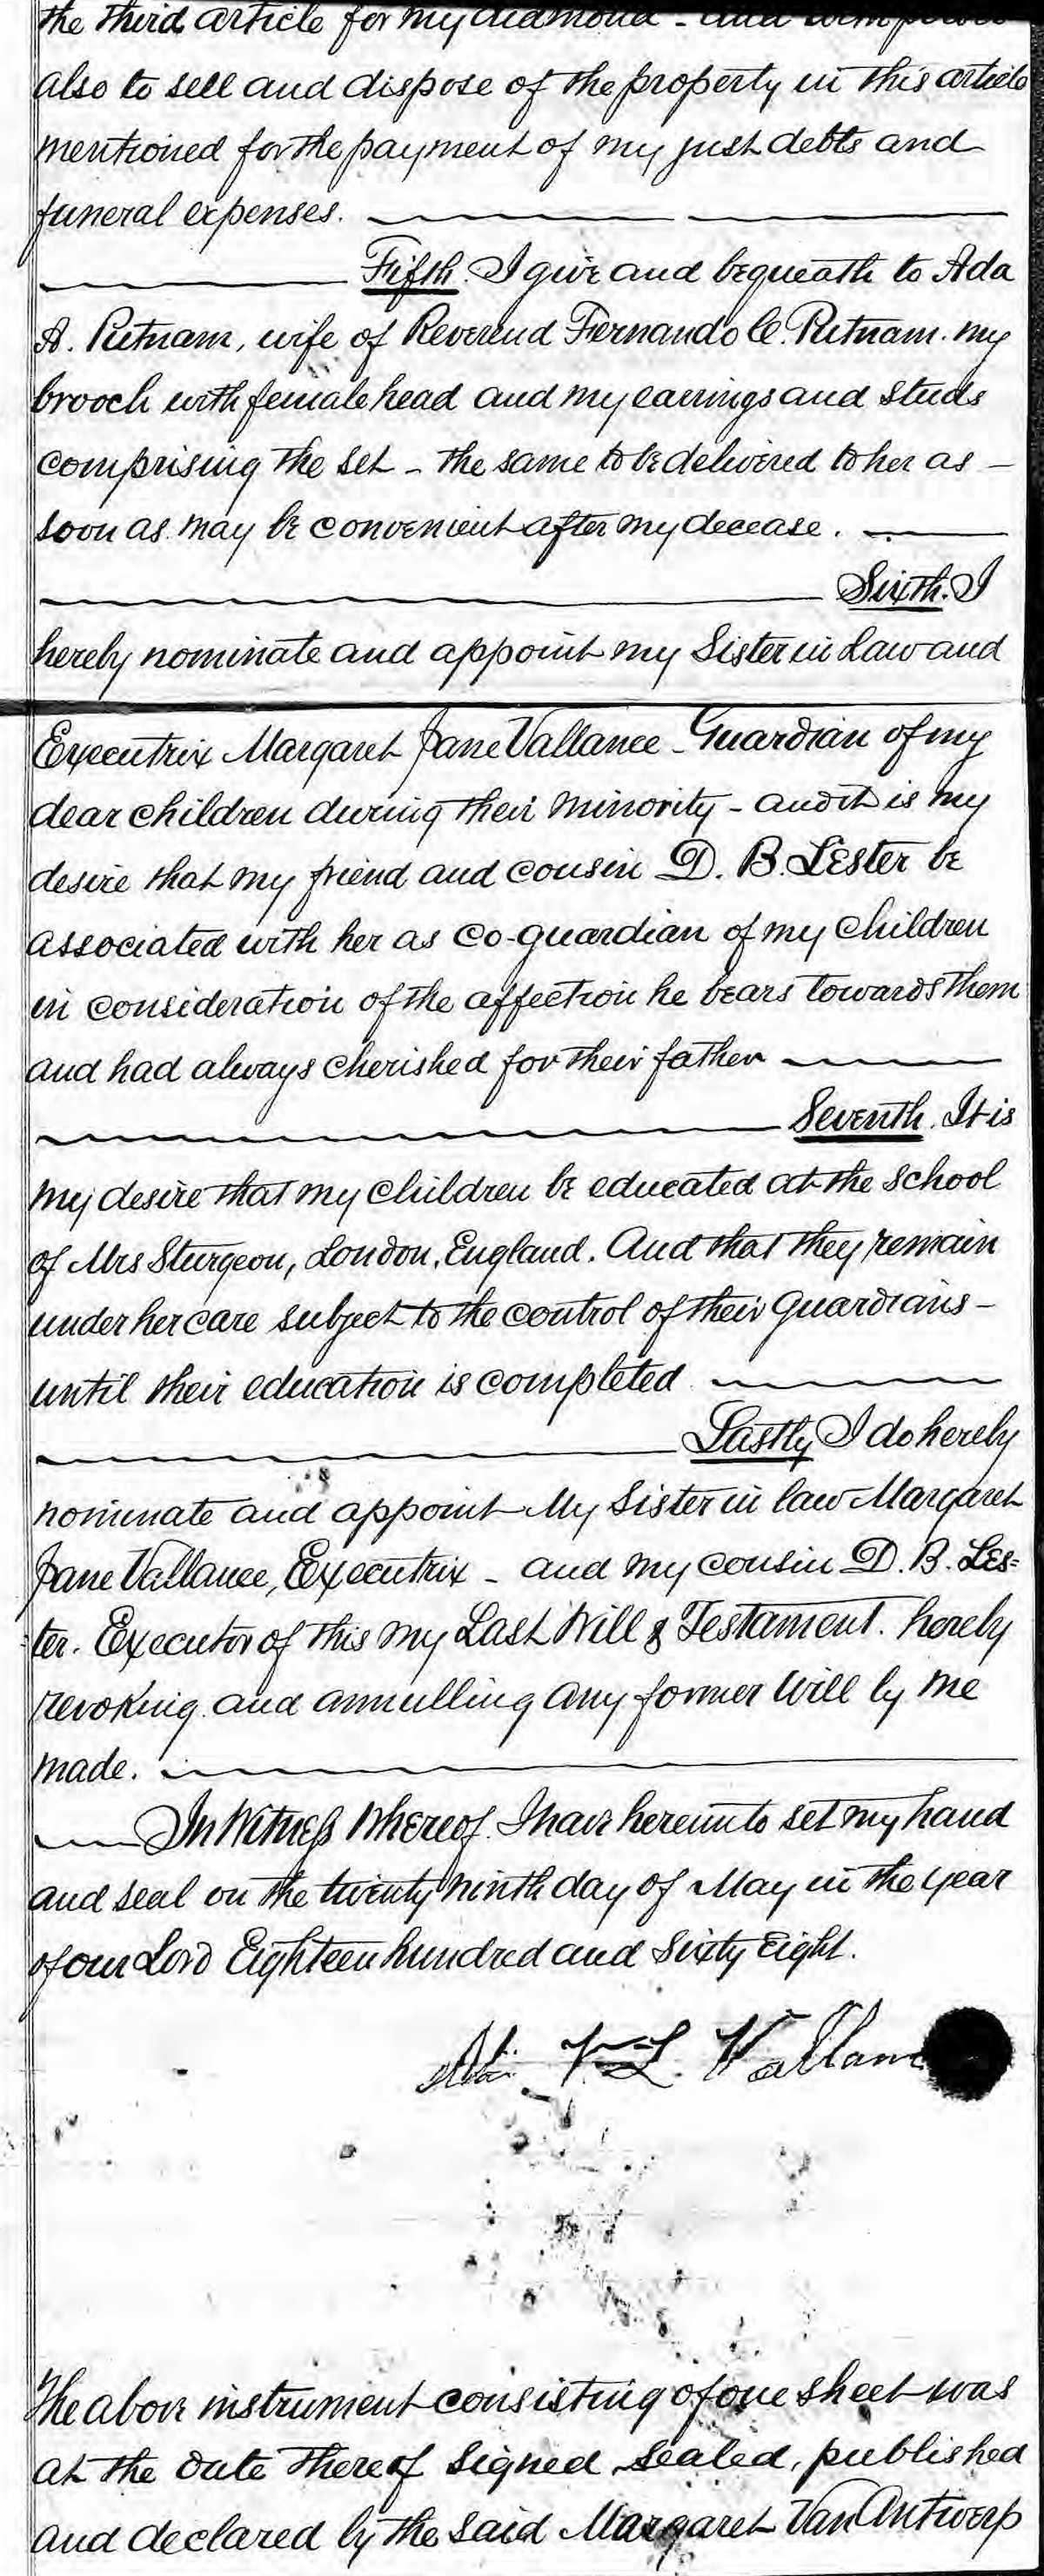 the third article for my diamond - and with power
also to sell and dispose of the property in this article
mentioned for the payment of my just debts and
funeral expenses.
Fifth. I give and bequeath to Ada
A. Putnam, wife of Reverend Fernando C. Putnam. my
brooch with female head and my earrings and studs
comprising the set - the same to be delivered to her as -
soon as may be convenient after my decease.
Sixth. I
hereby nominate and appoint my Sister in Law and
Executrix Margaret Jane Vallance - Guardian of my
dear children during their minority - and it is my
desire that my friend and cousin D. B. Lester be
associated with her as Co-guardian of my Children
in consideration of the affection he bears towards them
and had always cherished for their father
Seventh. It is
my desire that my children be educated at the school
of Mrs Sturgeon, London, England. And that they remain
under her care subject to the control of their Guardians -
until their education is completed
Lastly I do hereby
nominate and appoint My Sister in law Margaret
Jane Vallance, Executrix - and my cousin D. B. Les=
=ter. Executor of this my Last Will & Testament. hereby
revoking and annulling any former Will by me
made.
In Witness Whereof. I have hereunto set my hand
and seal on the twenty ninth day of May in the year
of our Lord Eighteen hundred and Sixty Eight.
L. Vallan
The above instrument consisting of one sheet was
at the date thereof signed, sealed, published
and declared by the said Margaret Van Antwerp